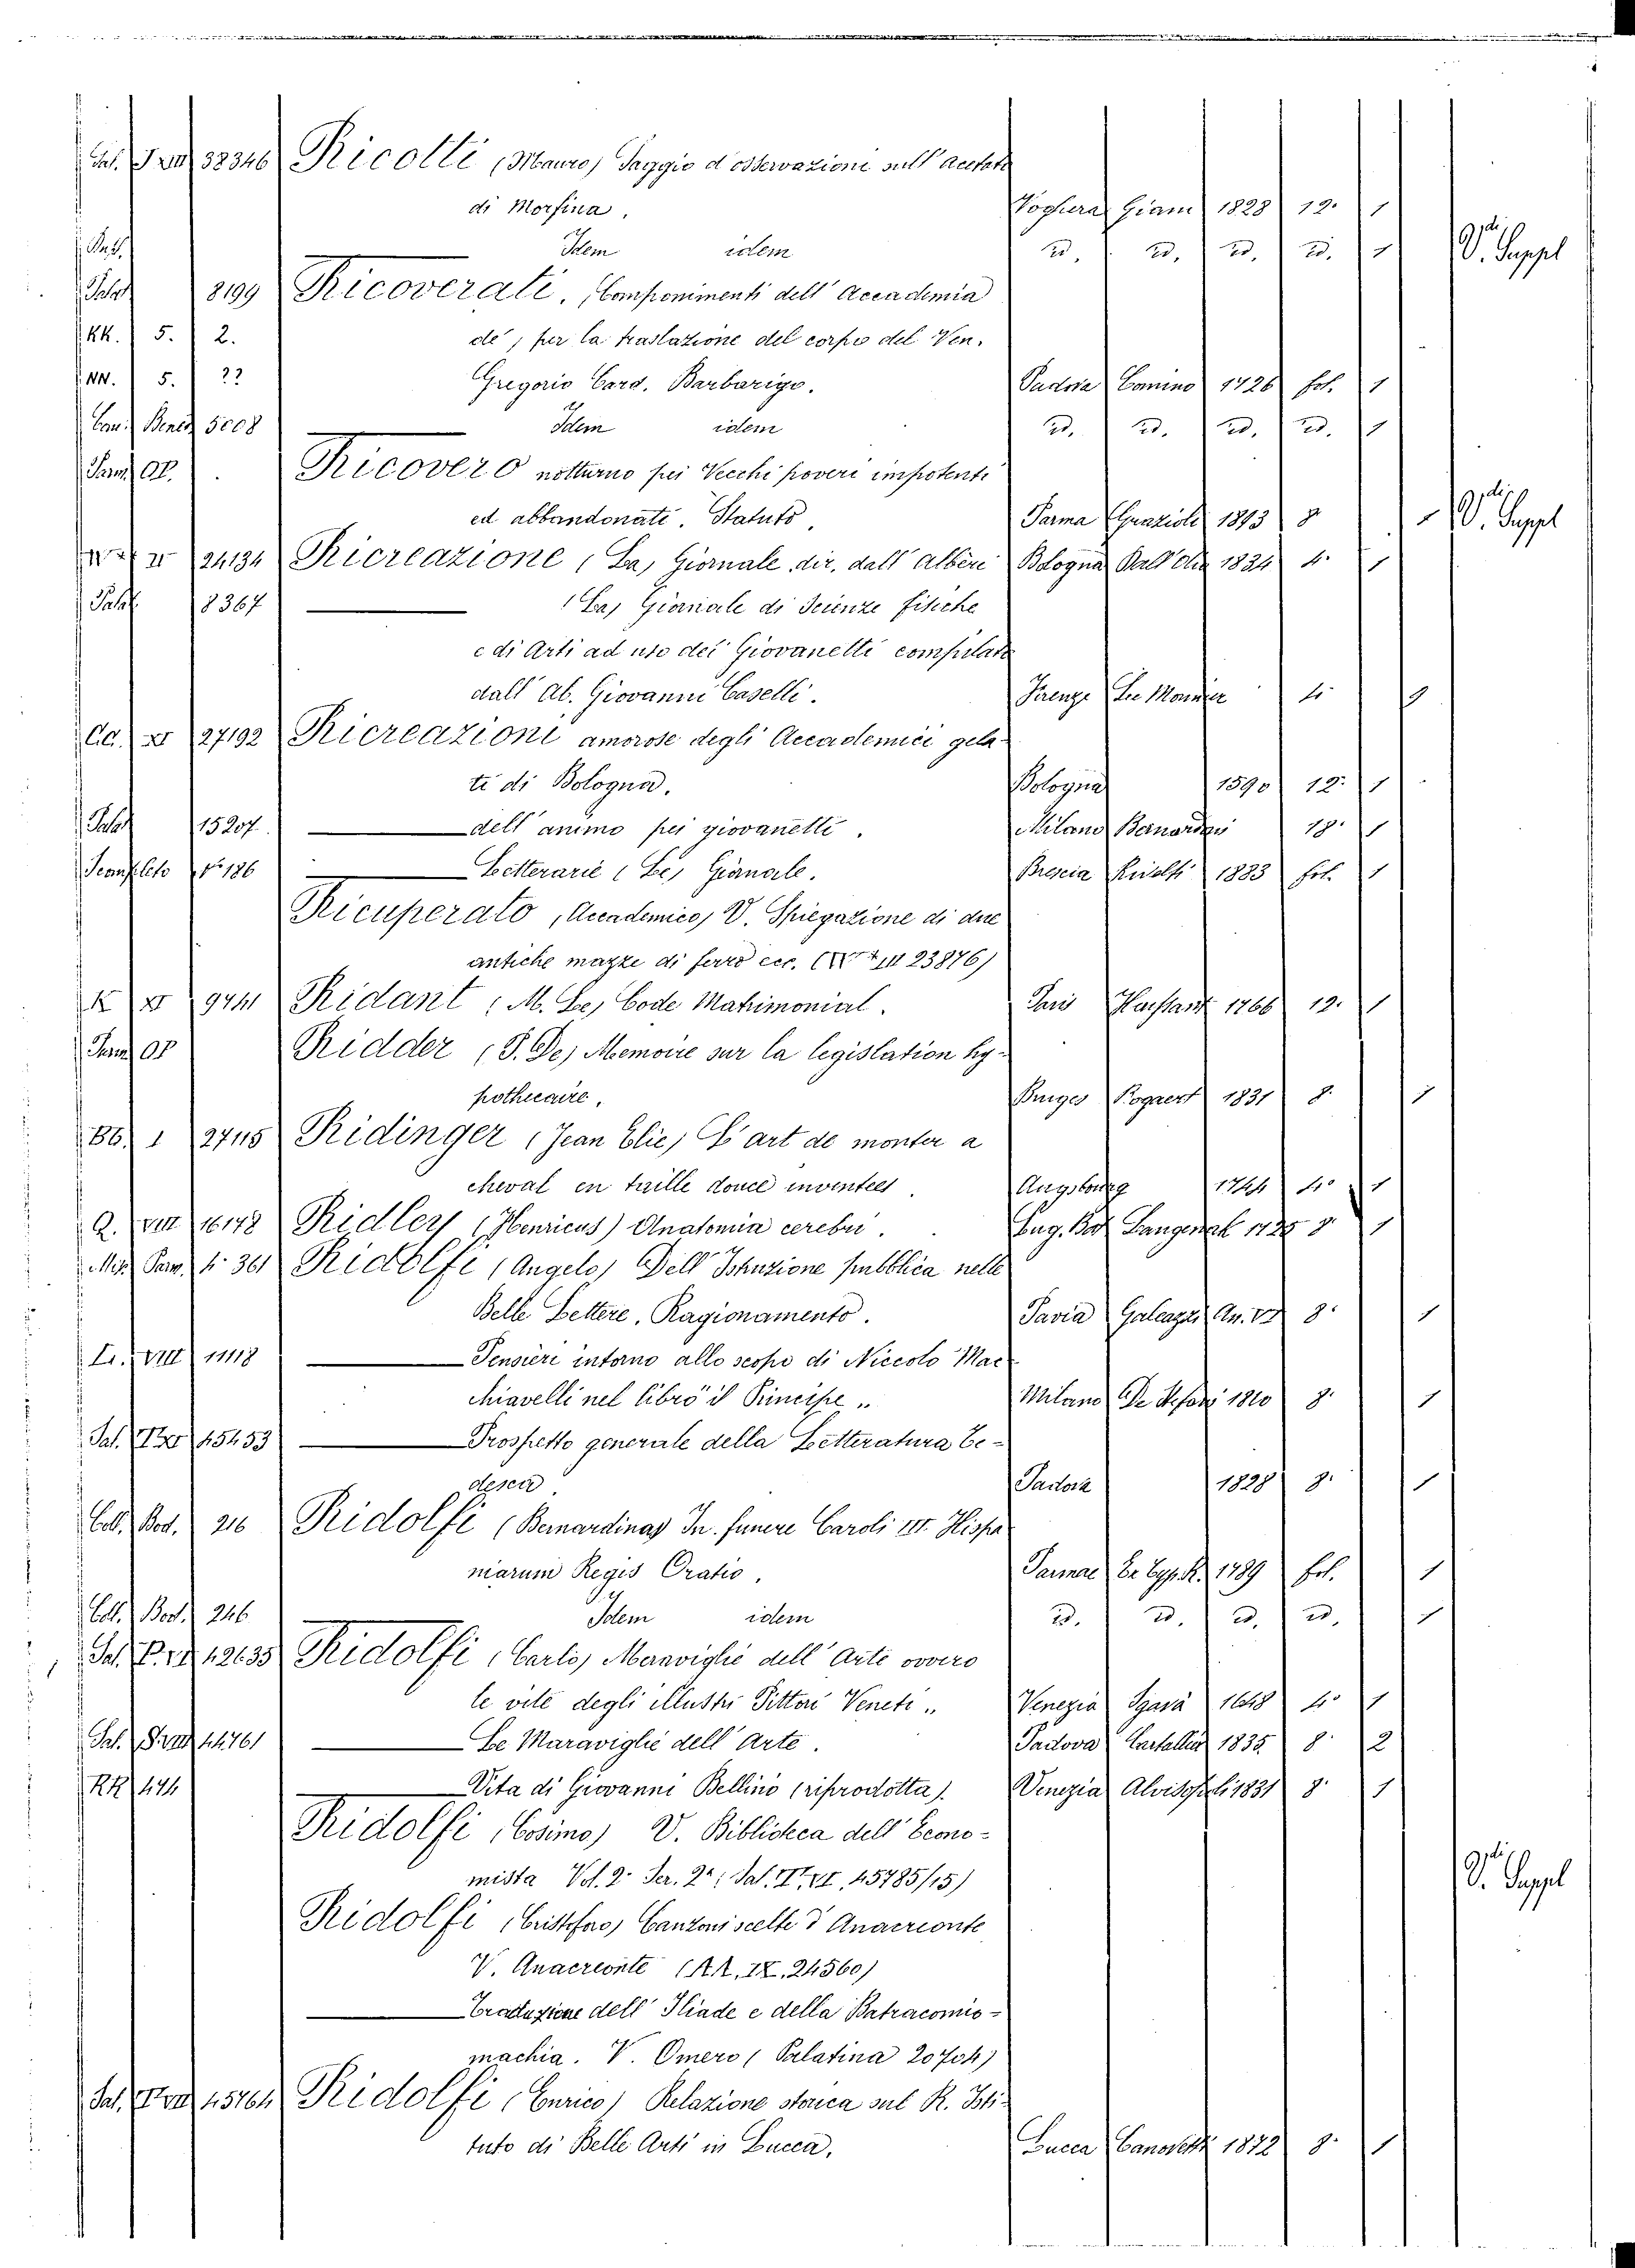 38346 Ricotti (Mauro) Saggio d'osservazioni sull'acetato
di Morfina. Voghera Giani 1828 12. 1
Idem idem id. id. id. id. 1 V. Suppl
8199 Ricoverati, Componimenti dell'Accademia
KK. 5. 2. de', per la traslazione del corpo del Ven.
NN. 5. 22 Gregorio Card. Barbarigo. Padova Comino 1726 fol. 1
Bened 5008 Idem idem id. id. id. id. 1
Ricovero notturno pei Vecchi poveri impotenti
ed abbandonati. Statuto. Parma Grazioli 1893 8 V. Suppl
24134 Ricreazione (La) Giornale dir. dall'Alberi Bologna Dall'Olio 1834 4. 1
Palat 8367 (La) Giornale di Scienze fisiche
e di Arti ad uso dei Giovanetti compilato
dall'Ab. Giovanni Caselli. Firenze Le Monnier 4 9
Cc. XI 27192 Ricreazioni amorose degli Accademici gela-
ti di Bologna. Bologna 1590 12. 1
Palat 15207 dell'animo pei giovanetti. Milano Bernardoni 18. 1
186 Letterarie (Le) Giornale. Brescia Ridolfi 1883 fol. 1
Ricuperato, (Accademico) V. Spiegazione di due
antiche mazze di ferro ecc. 23876)
K XI 9441 Ridant (M. Le) Code Matrimonial. Paris 1766 12. 1
Ridder (P. De) Memoire sur la legislation hy-
pothecaire. Bruges Bogaert 1831 8. 1
Bb. 1 27415 Ridinger (Jean Elie) L'art de monter a
cheval en taille douce inventees. Augsbourg 1744 4o 1
Q. VIII 16148 Ridley (Henricus) Anatomia cerebri. Lug. Bat. Langerak 1725 8. 1
Misc. Parm. 4o 361 Ridolfi (Angelo) Dell'Istruzione pubblica nelle
Belle Lettere, Ragionamento. Pavia Galeazzi An. VI 8. 1
VIII 11118 Pensieri intorno allo scopo di Niccolo Mac-
chiavelli nel libro "il Principe". Milano De Stefani 1810 8. 1
Sal. 45453 Prospetto generale della Letteratura Te-
desca. Padova 1828 8. 1
Coll. Bod. 216 Ridolfi (Bernardinas) In funere Caroli III. Hispa-
niarum Regis Oratio. Parmae Ex Typ. R. 1789 fol. 1
Coll. Bod. 246 Idem idem id. id. id. id. 1
12635 Ridolfi (Carlo) Maraviglie dell'Arte ovvero
le vite degli illustri Pittori Veneti. Venezia Sgava 1648 4o 1
Sal. 44761 Le Maraviglie dell'Arte. Padova Cartallier 1835 8. 2
RR 474 Vita di Giovanni Bellino (riprodotta). Venezia Alvisopoli 1831 8. 1
Ridolfi (Cosimo) V. Biblioteca dell'Econo-
mista Vol. 2o Ser. 2a (Sal. 45785/15) V. Suppl
Ridolfi (Cristoforo) Canzoni scelte d'Anacreonte
V. Anacreonte (AA. IX. 24560)
Traduzione dell'Iliade e della Batracomio-
machia. V. Omero (Palatina 20704)
Sal. 45764 Ridolfi (Enrico) Relazione storica sul R. Isti-
tuto di Belle Arti in Lucca. Lucca Canovetti 1872 8. 1